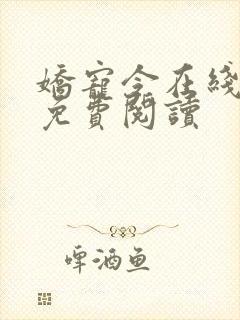 嬌寵令在綫
免費閱讀
啤酒鱼